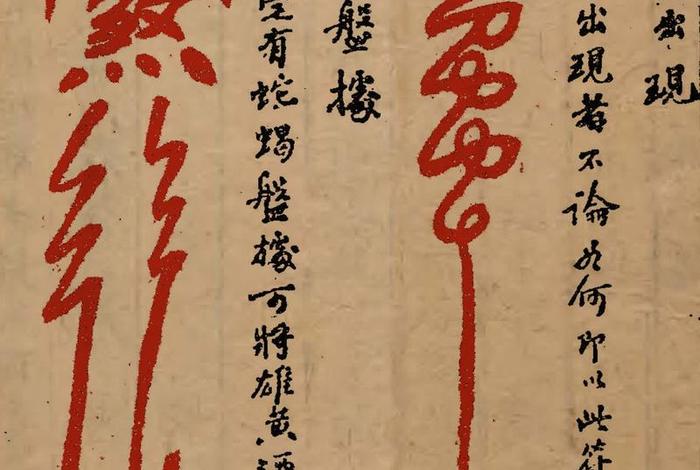 出現
出現者不論如何即以此符
盤據
有蛇蝎盤據可將雄黃